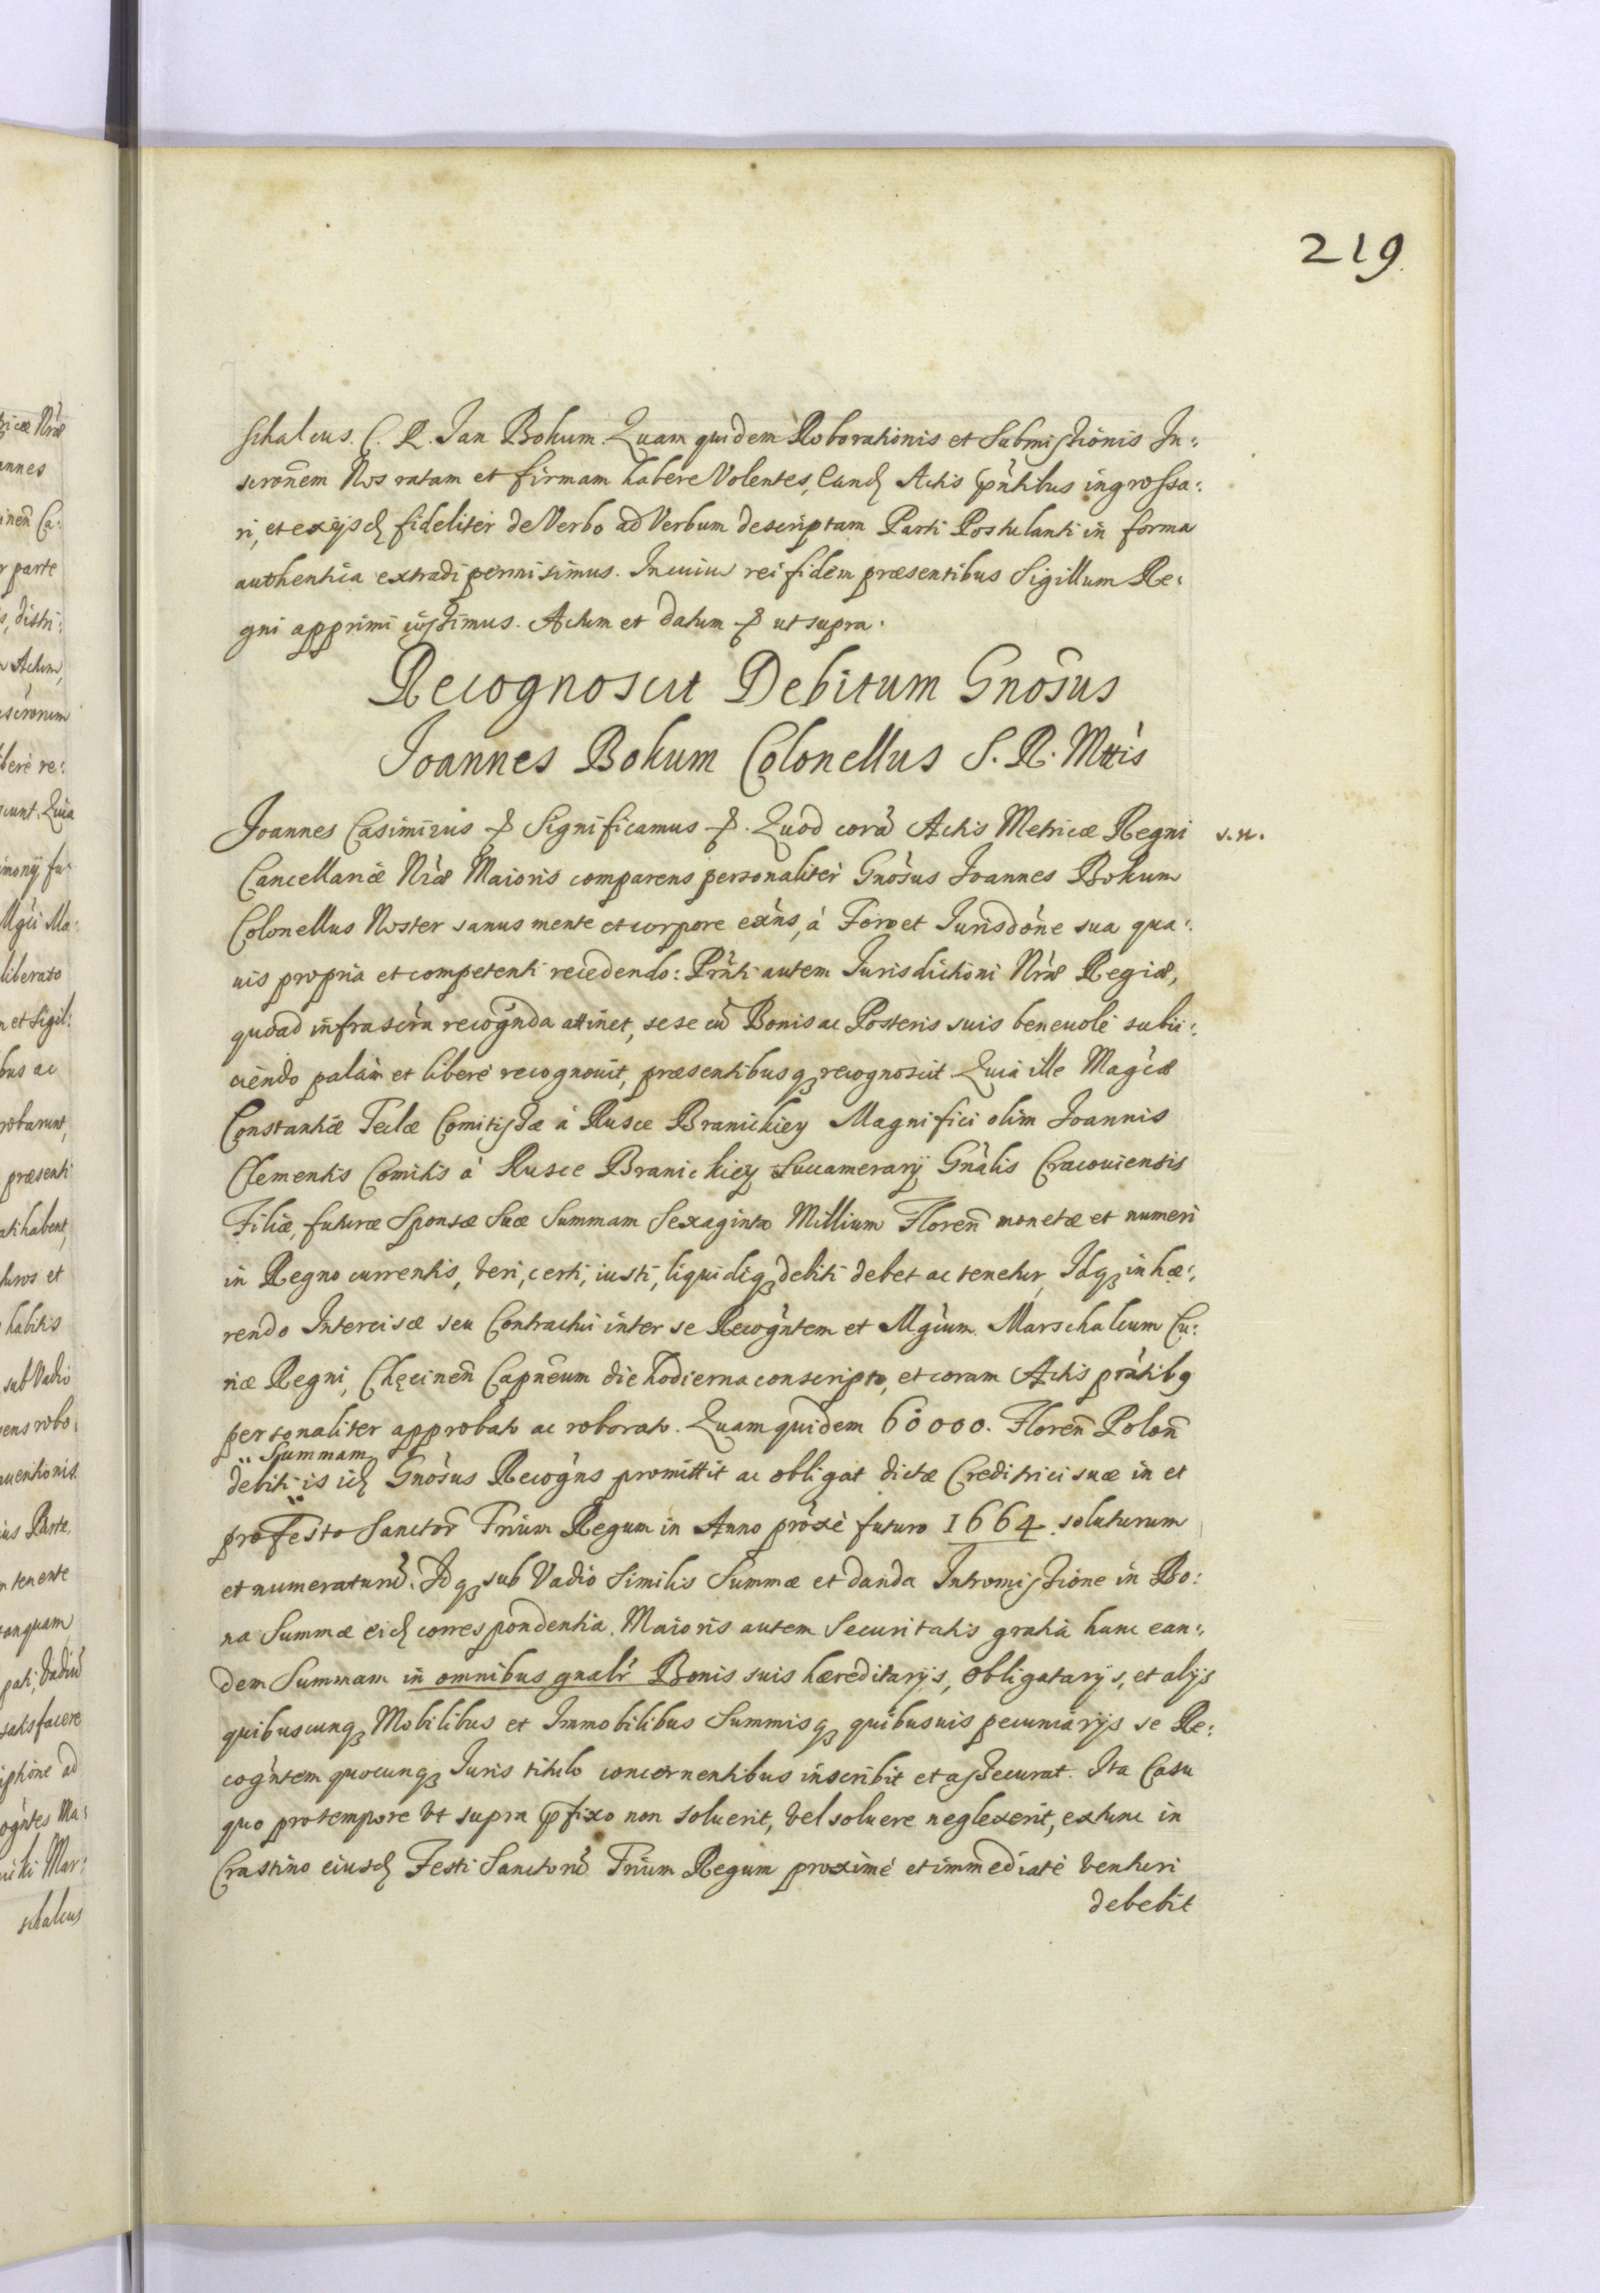 219.
schalcus. C. R. Jan Bokum. Quam quidem Roborationis et Submissionis In:
scronem Nos ratam et firmam habere Volentes, Eand Actis pntibus ingrossa:
ri, et exijsd fideliter de Verbo ad Verbum descriptam Parti Postulanti in forma
authentica extradi permisimus. In cuius rei fidem præsentibus Sigillum Re:
gni apprimi iussimus. Actum et datum ut supra.
Recognoscit Debitum Gnosus
Joannes Bokum Colonellus S. R. Mttis
Joannes Casimirus Significamus. Quod corã Actis Metricæ Regni s. n.
Cancellariæ Nræ Maioris comparens personaliter Gnosus Joannes Bokum
Colonellus Noster sanus mente et corpore exns, à Foro et Jurisdone sua qua:
uis propria et competenti recedendo: Prnti autem Jurisdictioni Nræ Regiæ,
quoad infrascra recognda attinet, sese cũ Bonis ac Posteris suis beneuolè subii:
ciendo palàm et liberè recognouit, præsentibusq recognoscit. Quia ille Magcæ
Constantiæ Teclæ Comitissæ à Rusce Branickiey Magnifici olim Joannis
Clementis Comitis à Rusce Branickiey Succamerarij Gnalis Cracouiensis
Filiæ, futuræ Sponsæ Suæ Summam Sexaginta Millium Floreñ monetæ et numeri
in Regno currentis, veri, certi, iusti, liquidiq debiti debet ac tenetur, Idq inhæ:
rendo Intercisæ seu Contractui inter se Recogntem et Mgcum Marschalcum Cu:
riæ Regni, Chęcineñ Capneum die hodierna conscripto, et coram Actis prntibq
personaliter approbato ac roborato. Quam quidem 60000. Floreñ Poloñ
Summam
debiti is id Gnosus Recogns promittit ac obligat dictæ Creditrici suæ in et
pro Festo Sanctor Trium Regum in Anno proxè futuro 1664. soluturum
et numeraturũ. Idq sub Vadio similis Summæ et danda Intromissione in Bo:
na Summæ eid correspondentia. Maioris autem Securitatis gratia hanc ean:
dem Summam in omnibus gnalr Bonis suis hæreditarijs, obligatarijs, et alijs
quibuscunq Mobilibus et Immobilibus Summisq quibusuis pecuniarijs se Re:
cogntem quocunq Juris titulo concernentibus inscribit et assecurat. Ita Casu
quo pro tempore vt supra pfixo non soluerit, vel soluere neglexerit, extunc in
Crastino eiusd Festi Sanctorũ Trium Regum proximè et immediatè venturi
debebit